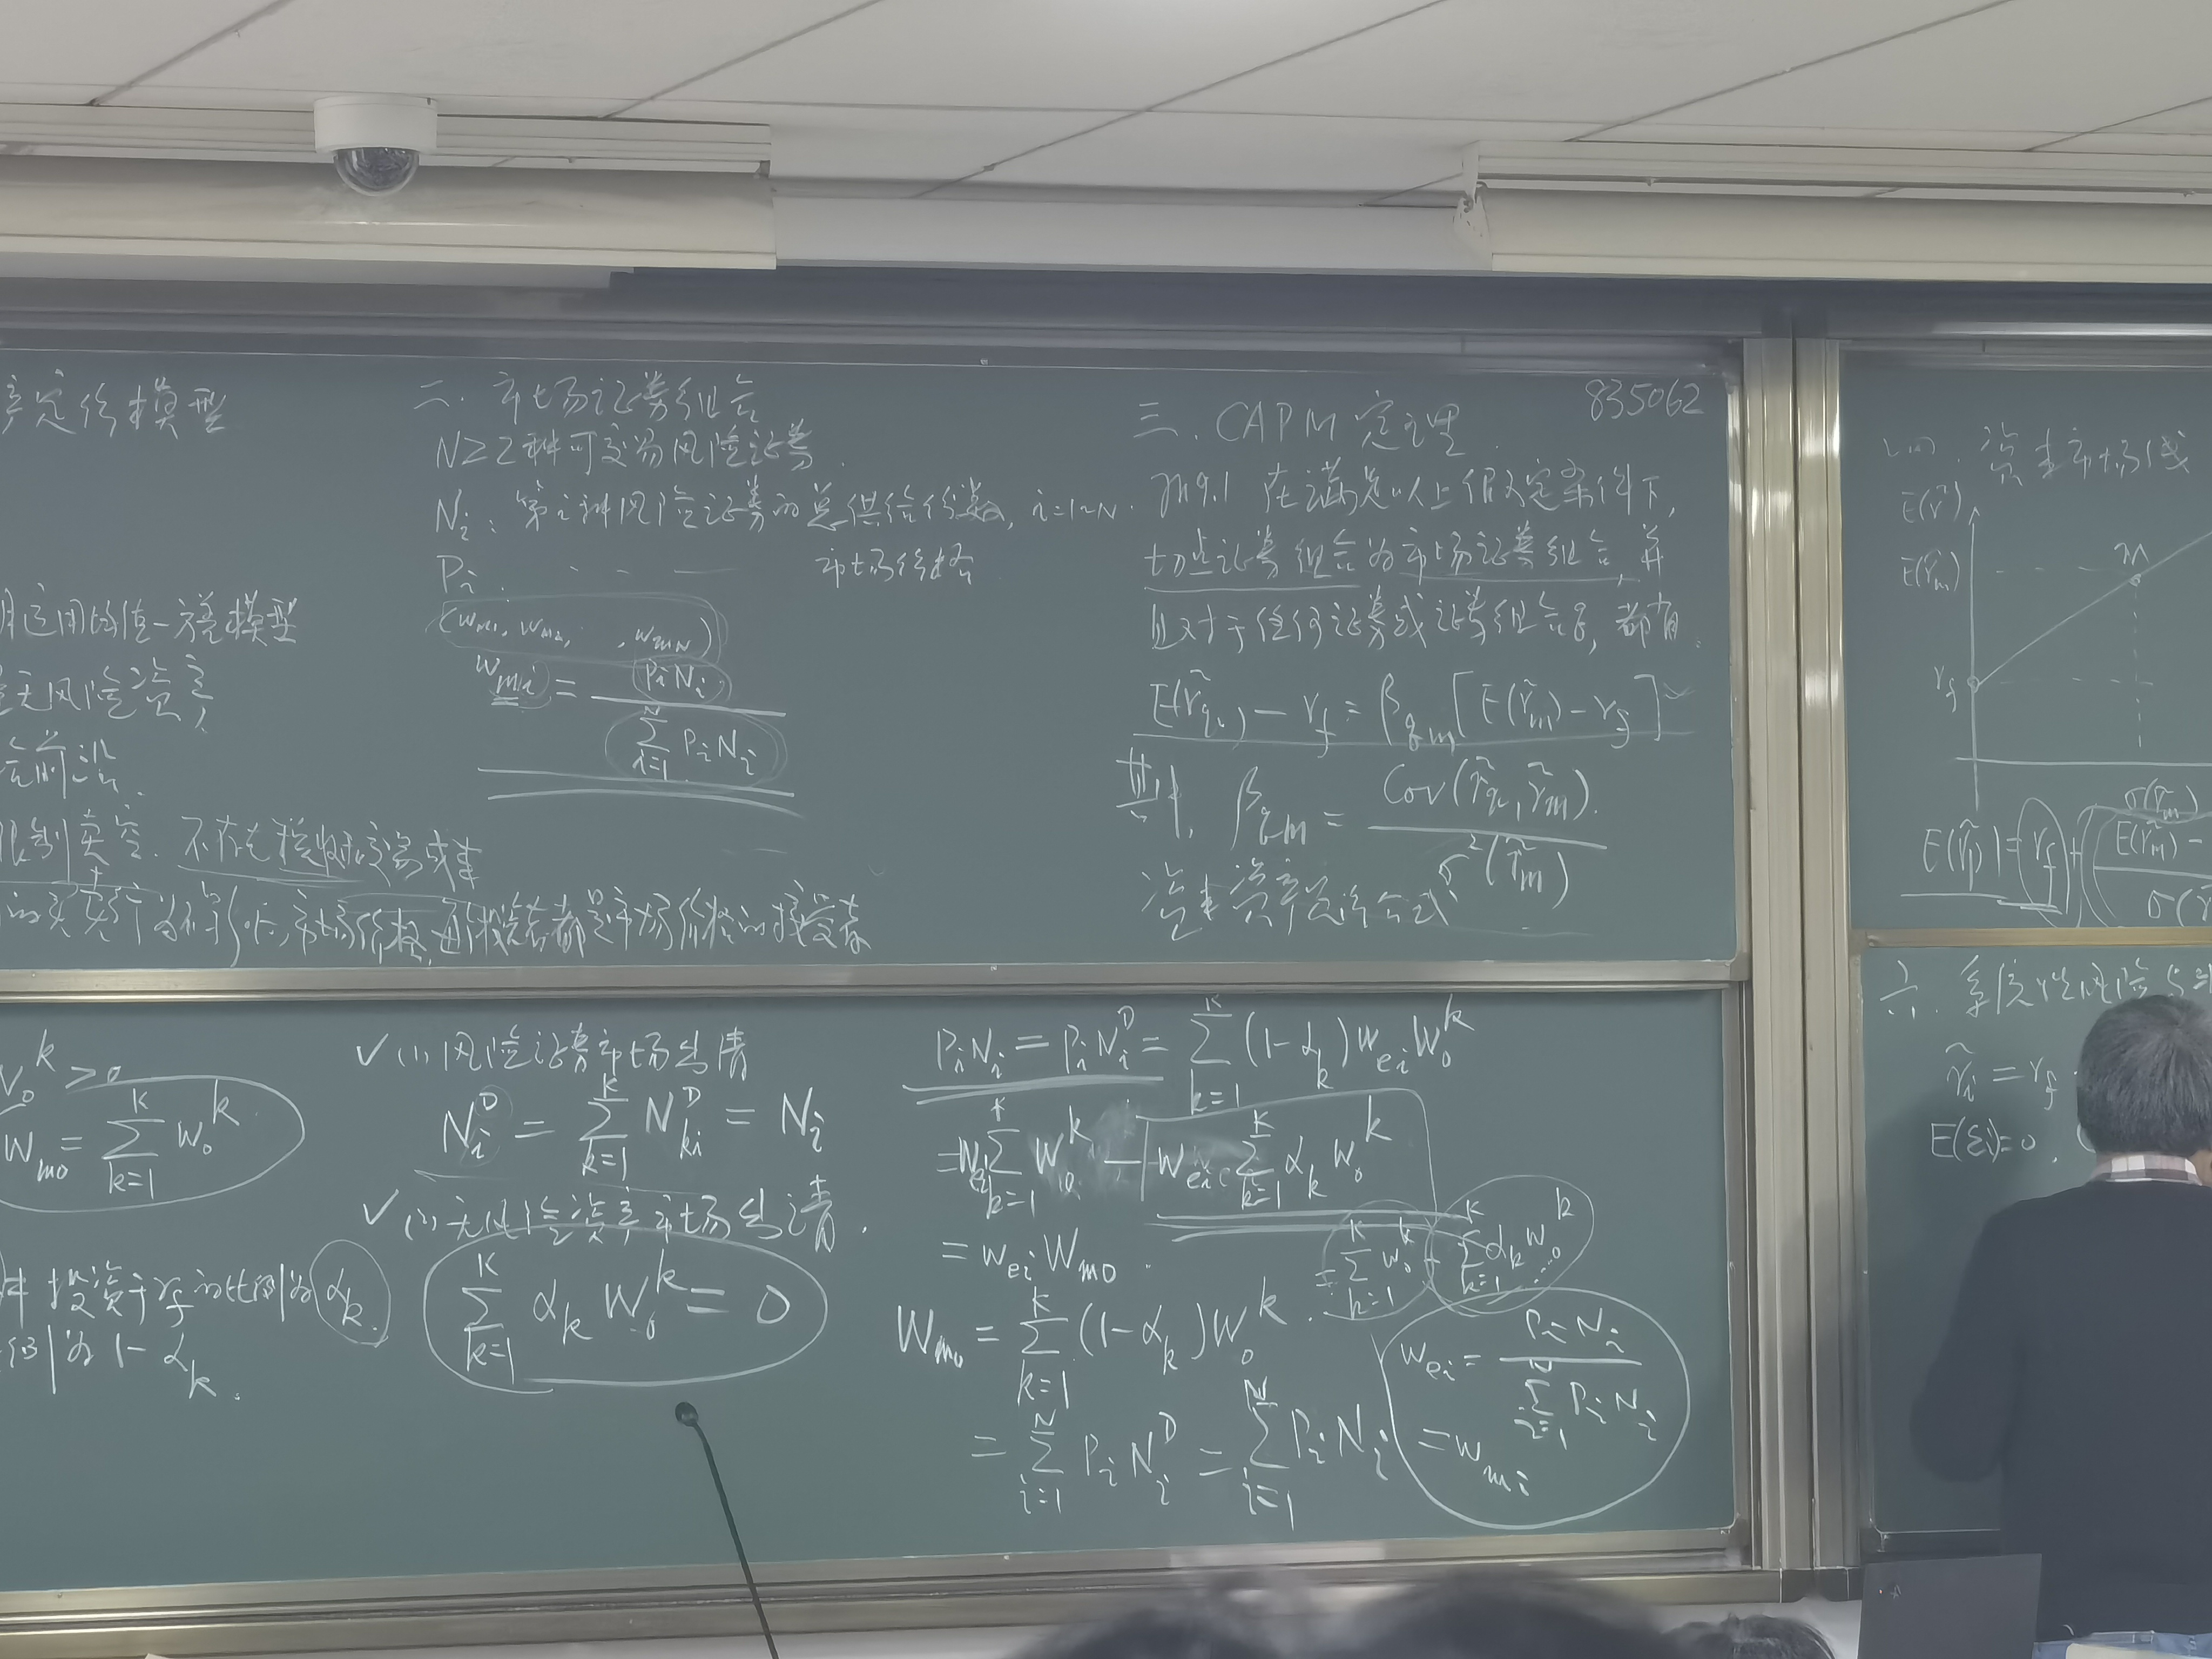 产定价模型
用运用均值-方差模型
无风险资产
限制卖空.不存在税收和交易成本
的买卖行为不影响市场价格,所有投资者都是市场价格的接受者
二.市场证券组合
N≥2种可交易风险证券.
N_i: 第i种风险证券的总供给份数, i=1~N.
P_i. - - — 市场价格
(w_m1, w_m2, , w_mN)
w_mi = P_i N_i / ∑_{i=1}^{N} P_i N_i
三.CAPM定理
835062
在满足以上假定条件下,
切点证券组合为市场证券组合,并
且对于任何证券或证券组合q,都有
E(r̃_q) - r_f = β_qm [E(r̃_m) - r_f]
其中, β_qm = Cov(r̃_q, r̃_m) / σ²(r̃_m)
资本资产定价公式
资本市场线
E(r̃)
E(r̃_m)
m
r_f
σ(r̃_m)
E(r̃_p) = r_f + E(r̃_m) - / σ(r̃
W_0^k > 0
W_m0 = ∑_{k=1}^{K} W_0^k
投资于r_f的比例为α_k.
例为1-α_k.
✓(1)风险证券市场出清
N_i^D = ∑_{k=1}^{K} N_ki^D = N_i
✓(2)无风险资产市场出清.
∑_{k=1}^{K} α_k W_0^k = 0
P_i N_i = P_i N_i^D = ∑_{k=1}^{K} (1-α_k) w_ei W_0^k
= w_ei ∑_{k=1}^{K} W_0^k - w_ei ∑_{k=1}^{K} α_k W_0^k
= w_ei W_m0.
W_m0 = ∑_{k=1}^{K} (1-α_k) W_0^k. = ∑_{k=1}^{K} W_0^k - ∑_{k=1}^{K} α_k W_0^k
= ∑_{i=1}^{N} P_i N_i^D = ∑_{i=1}^{N} P_i N_i
w_ei = P_i N_i / ∑_{i=1}^{N} P_i N_i
= w_mi
六.系统性风险与非
r̃_i = r_f
E(ε_i)=0.